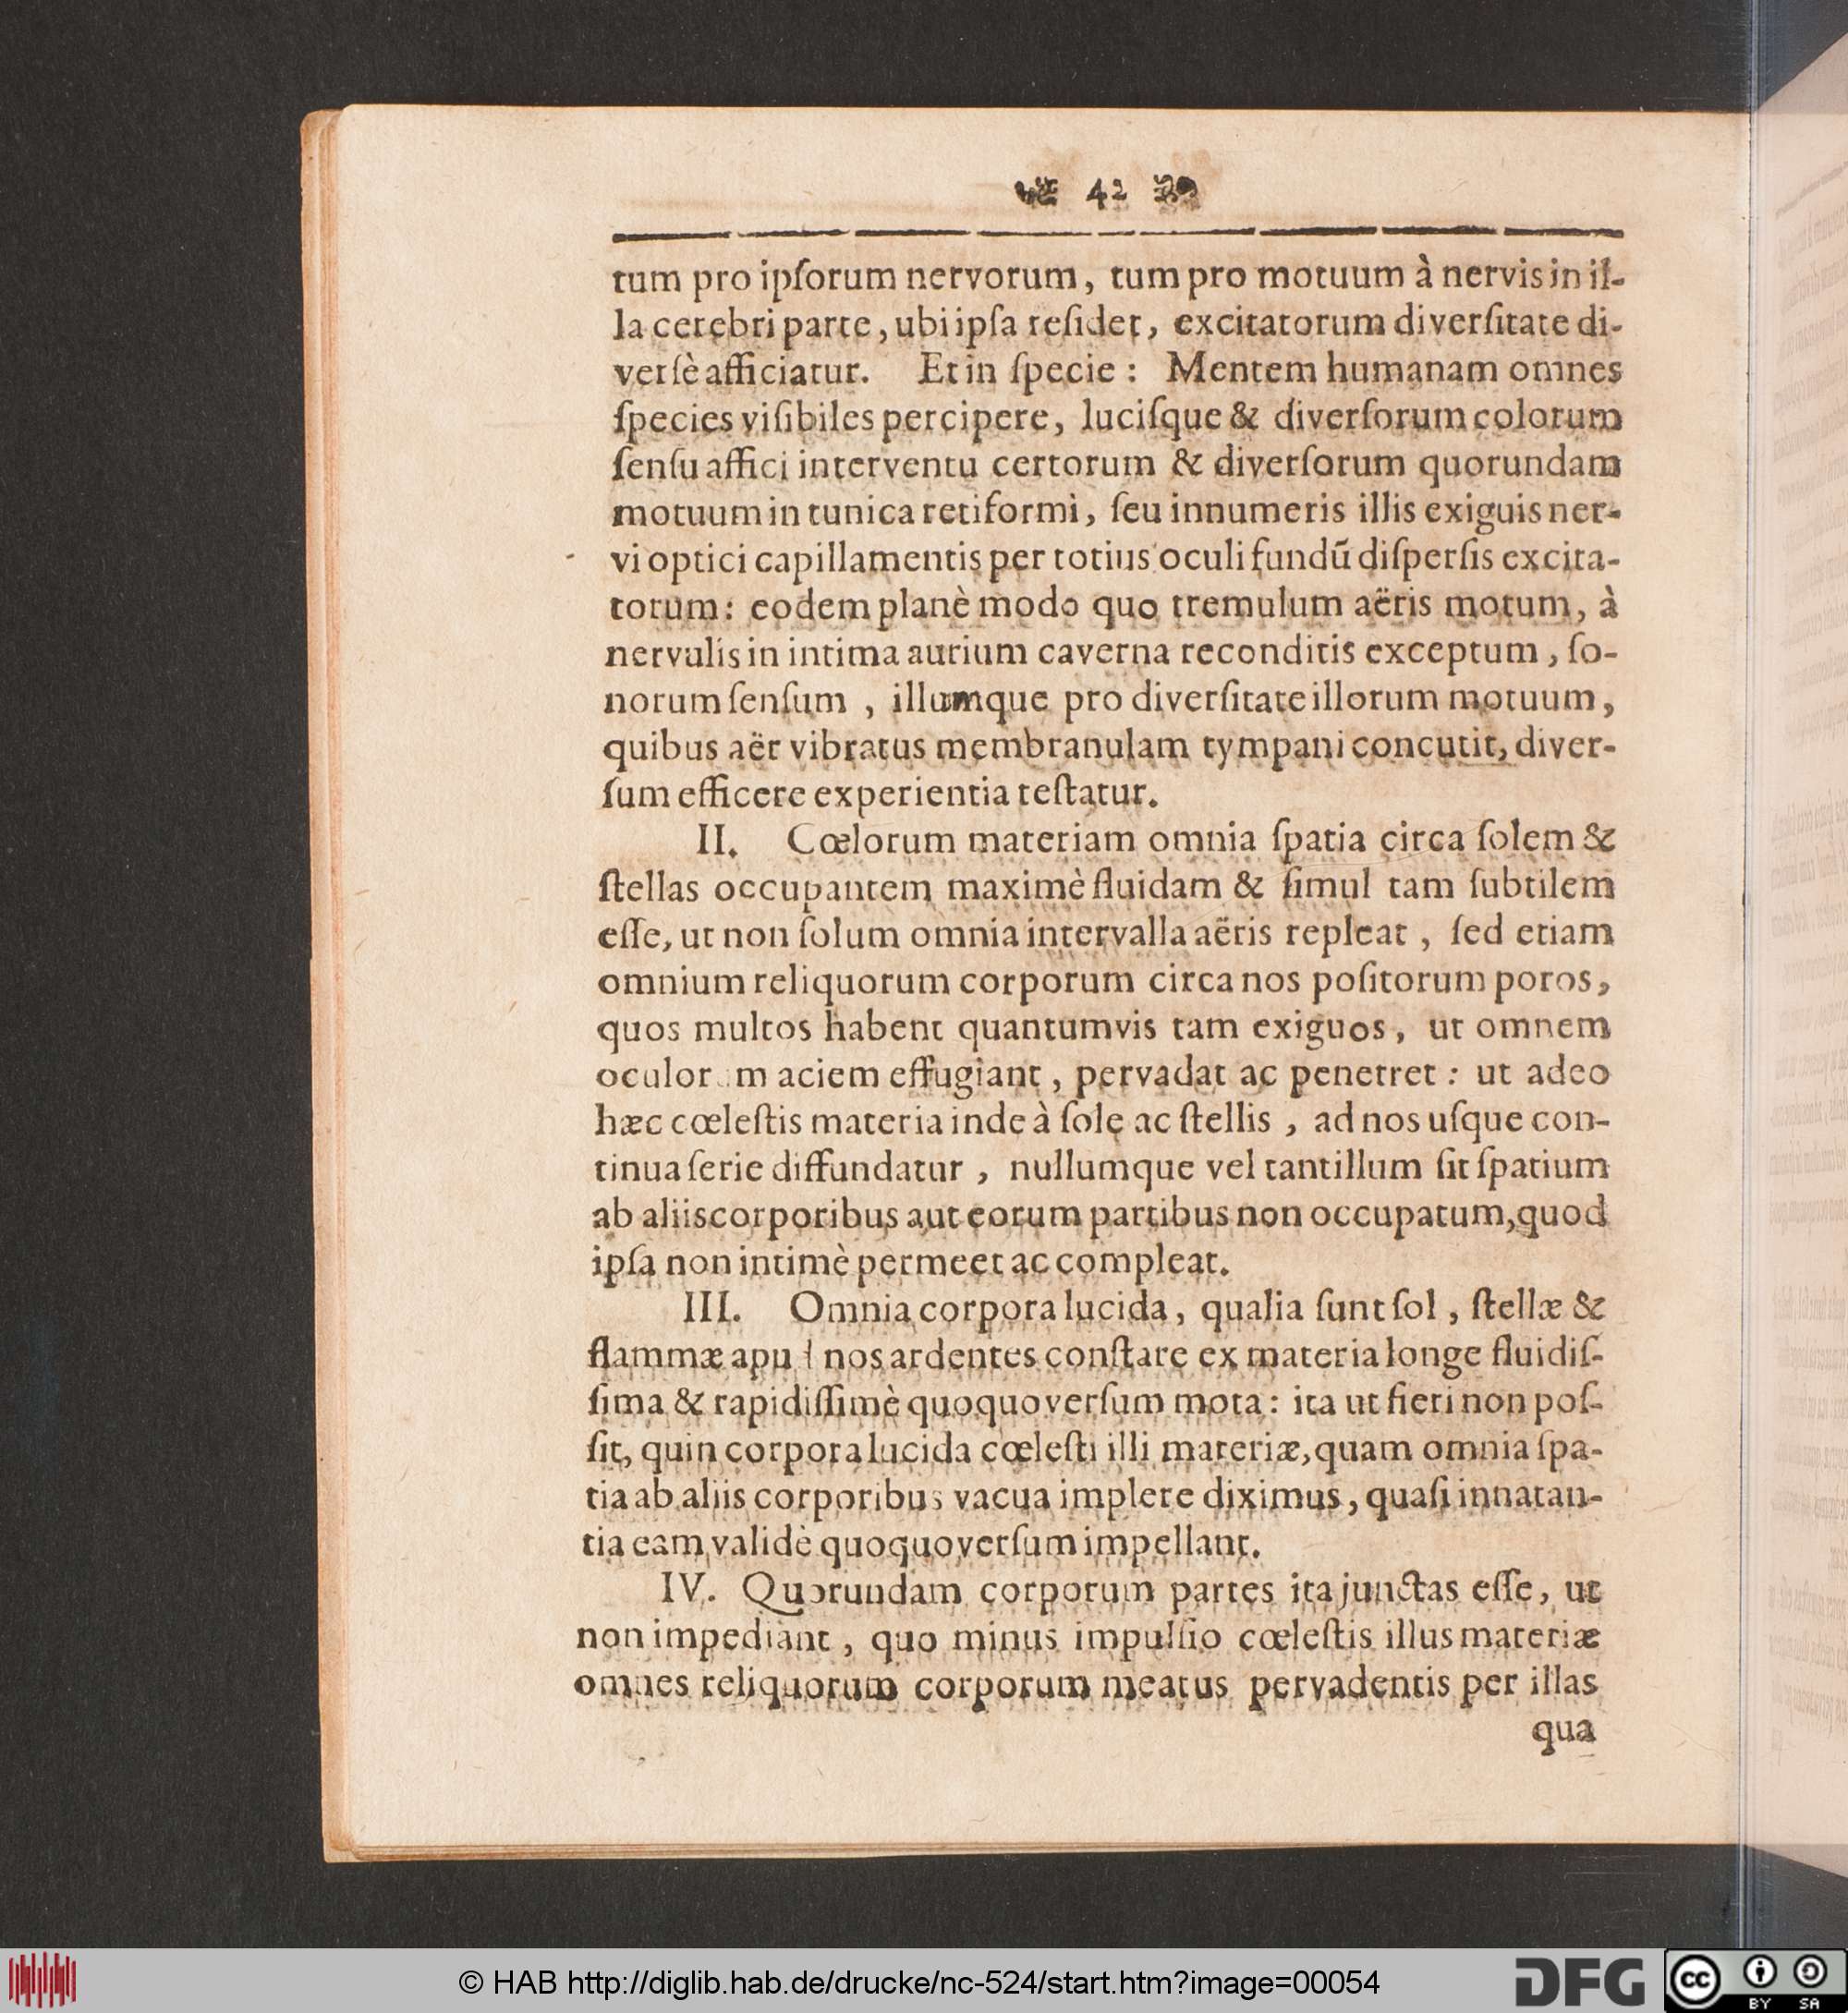 42
tum pro ipſorum nervorum, tum pro motuum à nervis in il-
la cerebri parte, ubi ipſa reſidet, excitatorum diverſitate di-
verſè afficiatur. Et in ſpecie: Mentem humanam omnes
ſpecies viſibiles percipere, luciſque & diverſorum colorum
ſenſu affici interventu certorum & diverſorum quorundam
motuum in tunica retiformi, ſeu innumeris illis exiguis ner-
vi optici capillamentis per totius oculi fundū diſperſis excita-
torum: eodem planè modo quo tremulum aëris motum, à
nervulis in intima aurium caverna reconditis exceptum, ſo-
norum ſenſum, illumque pro diverſitate illorum motuum,
quibus aër vibratus membranulam tympani concutit, diver-
ſum efficere experientia teſtatur.
II. Cœlorum materiam omnia ſpatia circa ſolem &
ſtellas occupantem maximè fluidam & ſimul tam ſubtilem
eſſe, ut non ſolum omnia intervalla aëris repleat, ſed etiam
omnium reliquorum corporum circa nos poſitorum poros,
quos multos habent quantumvis tam exiguos, ut omnem
oculorum aciem effugiant, pervadat ac penetret: ut adeo
hæc cœleſtis materia inde à ſole ac ſtellis, ad nos uſque con-
tinua ſerie diffundatur, nullumque vel tantillum ſit ſpatium
ab aliis corporibus aut eorum partibus non occupatum, quod
ipſa non intimè permeet ac compleat.
III. Omnia corpora lucida, qualia ſunt ſol, ſtellæ &
flammæ apud nos ardentes conſtare ex materia longe fluidiſ-
ſima & rapidiſſimè quoquoverſum mota: ita ut fieri non poſ-
ſit, quin corpora lucida cœleſti illi materiæ, quam omnia ſpa-
tia ab aliis corporibus vacua implere diximus, quaſi innatan-
tia eam validè quoquoverſum impellant.
IV. Quorundam corporum partes ita junctas eſſe, ut
non impediant, quo minus impulſio cœleſtis illus materiæ
omnes reliquorum corporum meatus pervadentis per illas
qua
© HAB http://diglib.hab.de/drucke/nc-524/start.htm?image=00054
DFG
cc BY SA